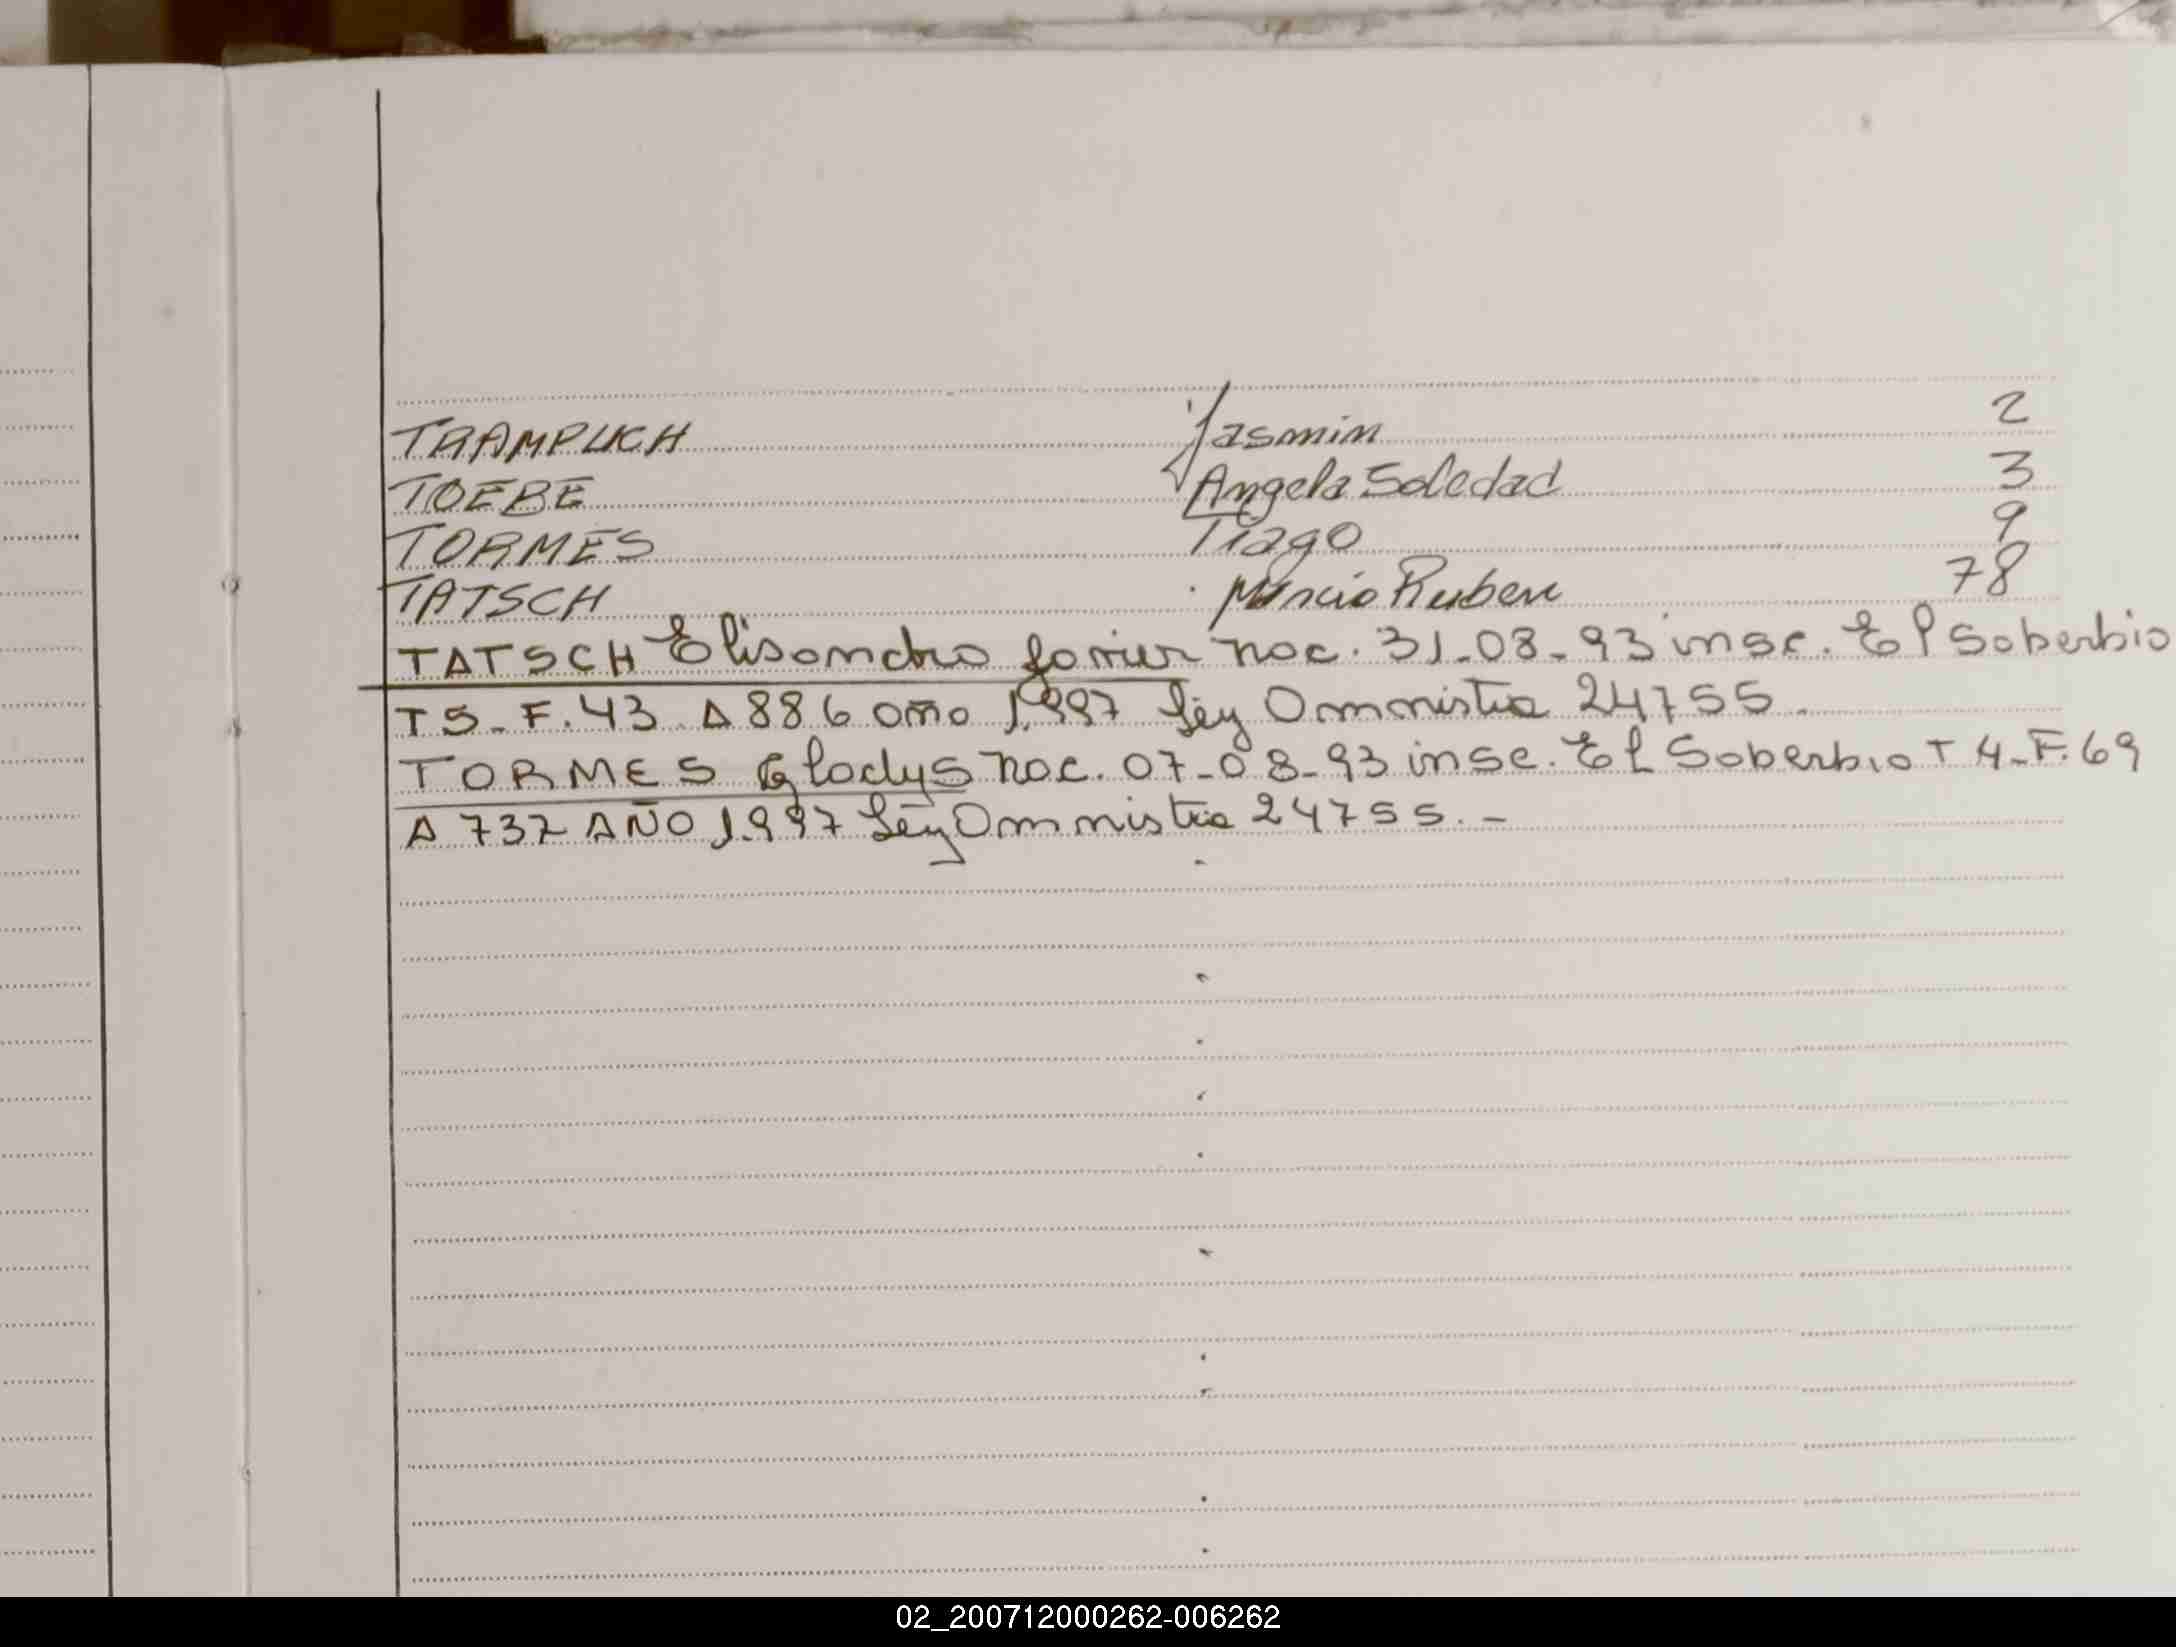 TRAMPUCH Jasmin 2
TOEBE Angela Soledad 3
TORMES Tiago 9
TATSCH Marcio Ruben 78
TATSCH Elisandro Javier nac. 31-08-93 insc. El Soberbio
T5-F.43 A 886 año 1.997 Ley Ammistia 24755.
TORMES Gladys nac. 07-08-93 insc. El Soberbio T 4-F.69
A 737 AÑO 1.997 Ley Ammistia 24755.-
02_200712000262-006262